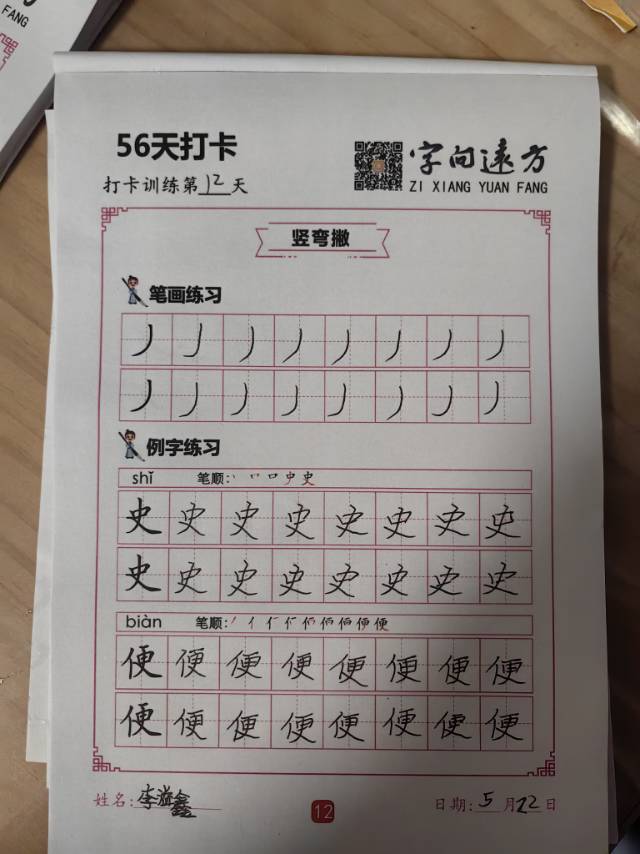 FANG
56天打卡
打卡训练第12天
字向远方
ZI XIANG YUAN FANG
竖弯撇
笔画练习
丿 丿 丿 丿 丿 丿 丿 丿
丿 丿 丿 丿 丿 丿 丿 丿
例字练习
shǐ 笔顺:
史 史 史 史 史 史 史 史
史 史 史 史 史 史 史 史
biàn 笔顺:
便 便 便 便 便 便 便 便
便 便 便 便 便 便 便 便
姓名:李 鑫
12
日期:5月22日